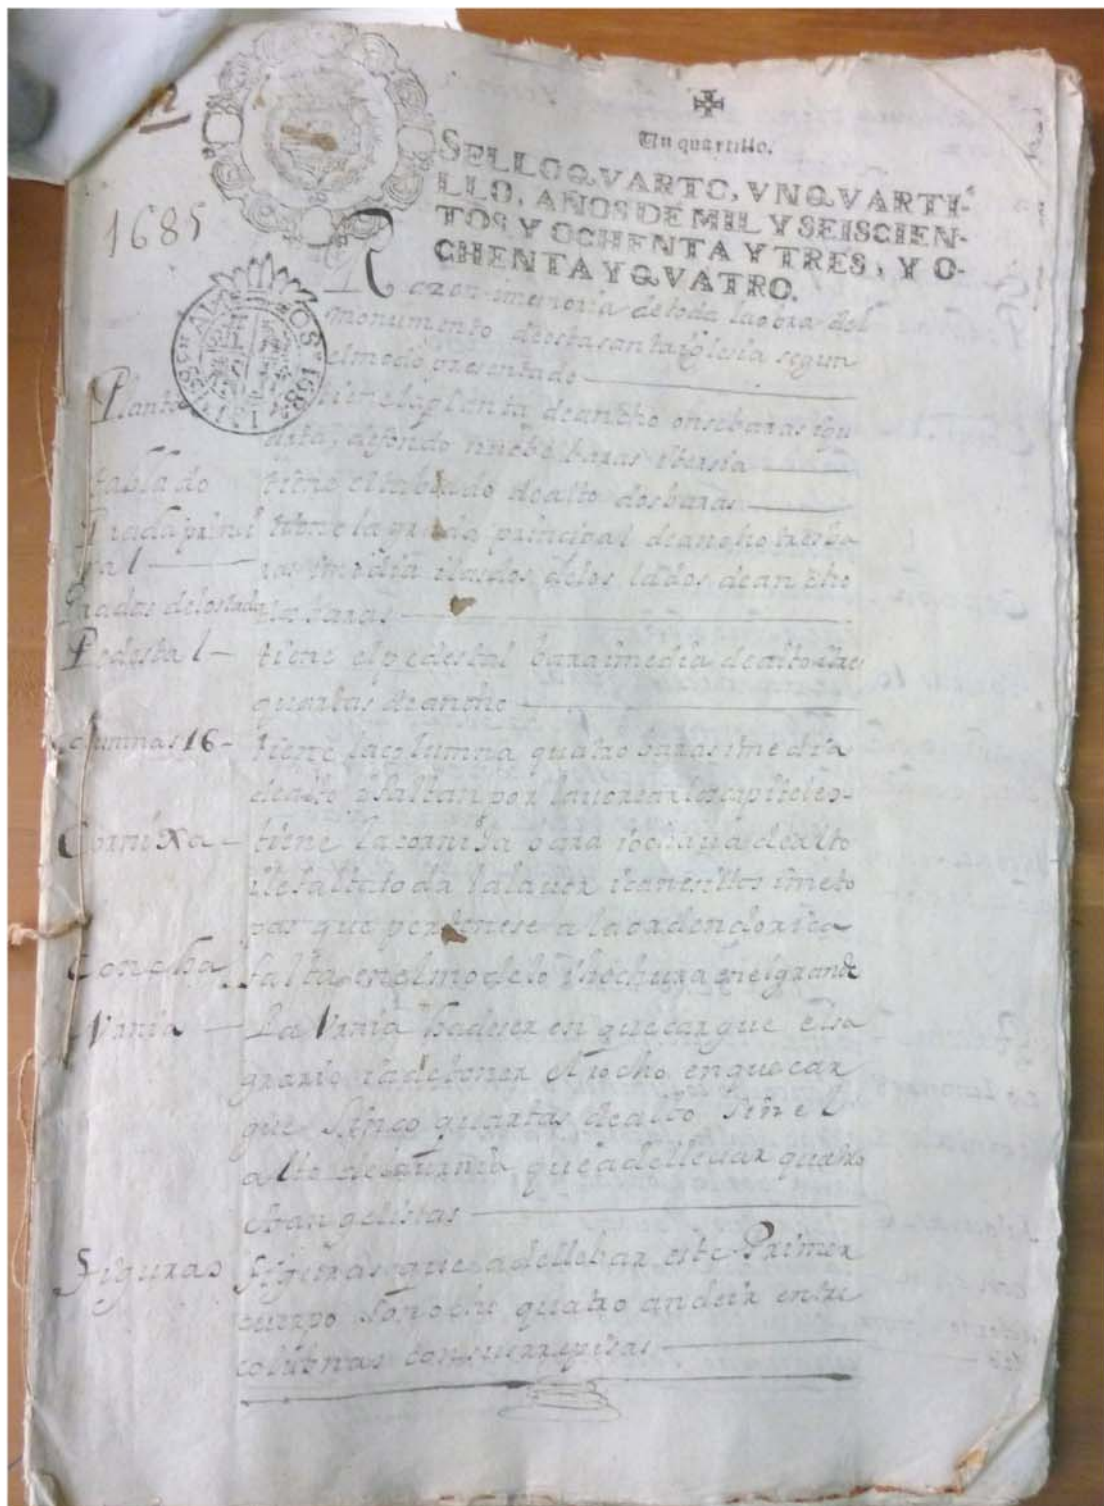 Un quartillo.
SELLO QVARTO, VN QVARTI-
LLO, AÑOS DE MIL Y SEISCIEN-
TOS Y OCHENTA Y TRES, Y O-
CHENTA Y QVATRO.
1685
Razon imemoria detoda laobra del
monumento deestasantaiglesia segun
elmodo presentado
Planta tiene la planta deancho onsebaras iqu
arta, defondo nuebe baras itersia
tablado tiene el tablado dealto dosbaras
Gradaprinsi tiene la grada principal deancho tresba
pal ras imedia ilasdos delos lados deancho
Gradas deloslados baras
Pedestal tiene elpedestal baraimedia dealto itres
quartas deancho
columnas 16 tiene lacolumna quatro baras imedia
dealto ifaltan por lauorear loscapiteles
Cornixa tiene lacornixa bara iochaua dealto
ilefaltatoda lalauor icanesillos imeto
pas que pertenese a laordendorica
Concha falta enelmodelo ihechura enelgrande
Vrnia La Vrnia hadeser en quecargue elsa
grario iadetener enquecar
gue sinco quartas dealto sin el
alto delaurnia queadelleuar quatro
ebangelistas
Figuras figuras quesadellebar este Primer
cuerpo sonocho quatro andeir entre
colubnas consusrrepisas